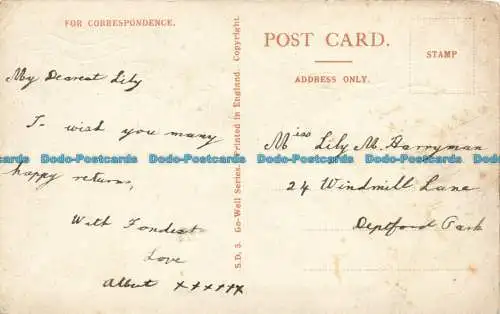 FOR CORRESPONDENCE.
My Dearest Lily
I wish you many
happy returns,
With Fondest
Love
Albert xxxxxx
S.D. 3. Go-Well Series. Printed in England. Copyright.
POST CARD.
ADDRESS ONLY.
STAMP
Miss Lily M. Harryman
24 Windmill Lane
Deptford Park
Dodo-Postcards Dodo-Postcards Dodo-Postcards Dodo-Postcards Dodo-Postcards